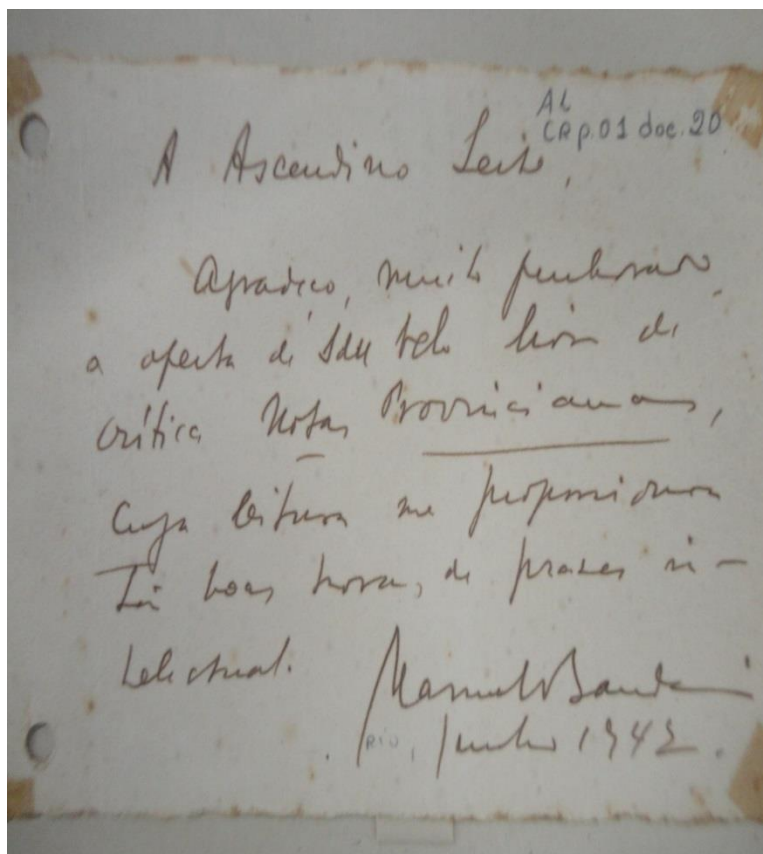 AL
CR p.01 doc.20
A Ascendino Leite,
Agradeço, muito penhorado,
a oferta de seu belo livro de
crítica Notas Provincianas,
cuja leitura me proporcionou
tão boas horas de prazer in-
telectual.
Manuel Bandeira
Rio, junho 1942.